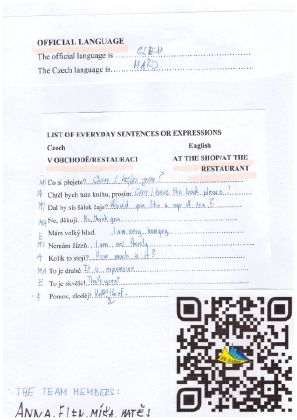 OFFICIAL LANGUAGE
The official language is CZECH
The Czech language is HARD
LIST OF EVERYDAY SENTENCES OR EXPRESSIONS
Czech English
V OBCHODĚ/RESTAURACI AT THE SHOP/AT THE
RESTAURANT
Co si přejete? Can I help you?
A Chtěl bych tuto knihu, prosím. Can I have this book please!
Dal by sis šálek čaje? Would you like a cup of tea?
Ne, děkuji. No, thank you.
E Mám velký hlad. I am very hungry.
MI Nemám žízeň. I am not thirsty.
A Kolik to stojí? How much is it?
MA To je drahé. It is expensive.
E To je skvělé! That's great
A Pomoc, zloděj! Help! thief.
THE TEAM MEMBERS:
ANNA, ELEN, MÍŠA, MATĚS